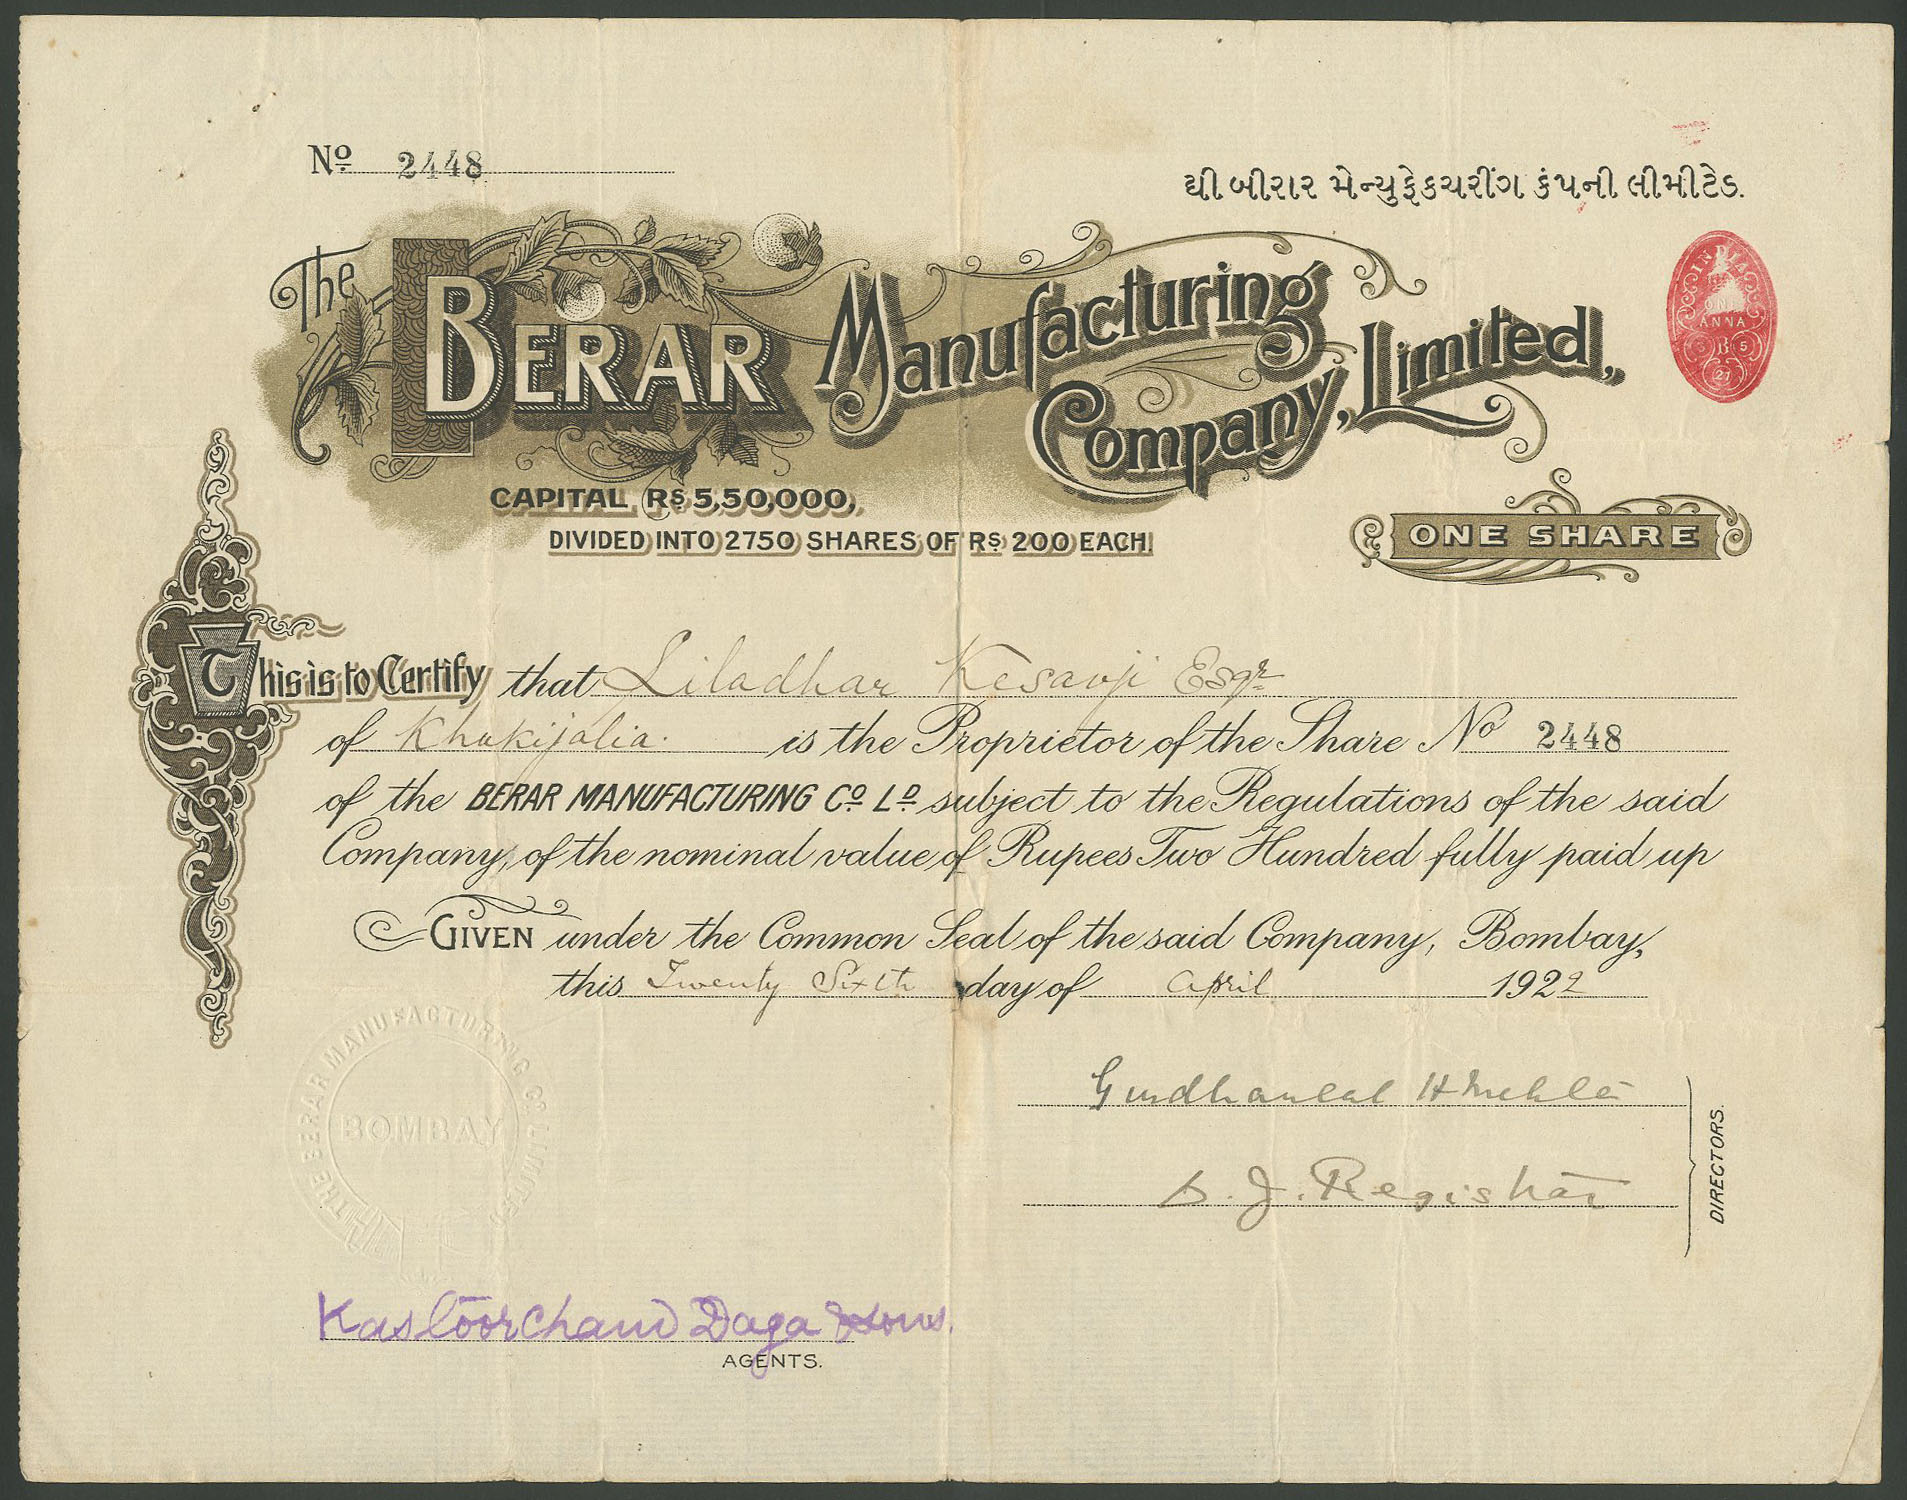 Nº 2448
ધી બીરાર મેન્યુફેકચરીંગ કંપની લીમીટેડ.
The BERAR Manufacturing Company, Limited,
INDIA
ONE
ANNA
B
5 5
21
CAPITAL Rs 5,50,000,
DIVIDED INTO 2750 SHARES OF Rs 200 EACH.
ONE SHARE
This is to Certify that Liladhar Kesavji Esqr
of Khakijalia. is the Proprietor of the Share No 2448
of the BERAR MANUFACTURING Co LD subject to the Regulations of the said
Company, of the nominal value of Rupees Two Hundred fully paid up
GIVEN under the Common Seal of the said Company, Bombay,
this Twenty Sixth day of April 1922
THE BERAR MANUFACTURING Co. LIMITED
BOMBAY
Gurdhanlal H Mehta
D. J. Registrar
DIRECTORS.
Kastoorchand Daga & Sons.
AGENTS.